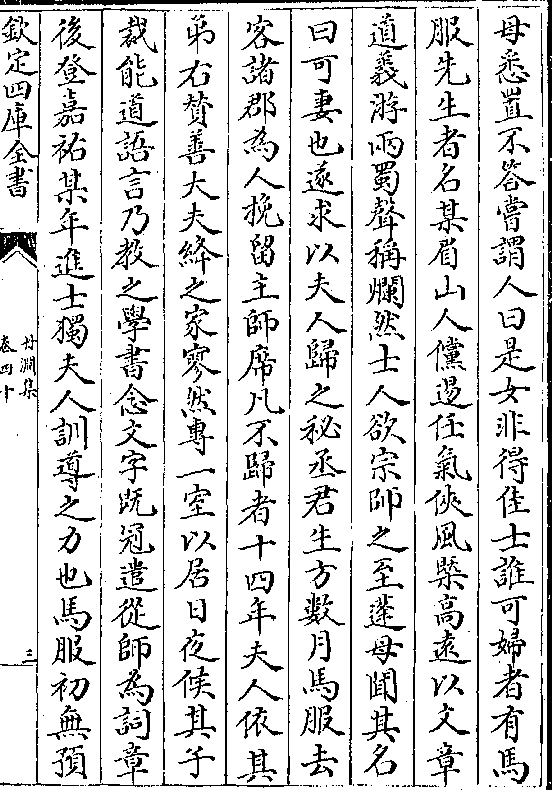 母悉置不答嘗謂人曰是女非得佳士誰可婦者有馬
服先生者名某眉山人儻逷任氣俠風槩髙逺以文章
道義游兩蜀聲稱爛然士人欲宗師之至蓬母聞其名
曰可妻也遂求以夫人歸之秘丞君生方數月馬服去
客諸郡為人挽留主師席凡不歸者十四年夫人依其
弟右賛善大夫絳之家寥然專一室以居日夜候其子
裁能道語言乃教之學書念文字既冠遣從師為詞章
後登嘉祐某年進士獨夫人訓導之力也馬服初無預
欽定四庫全書
丹淵集
卷四十
三